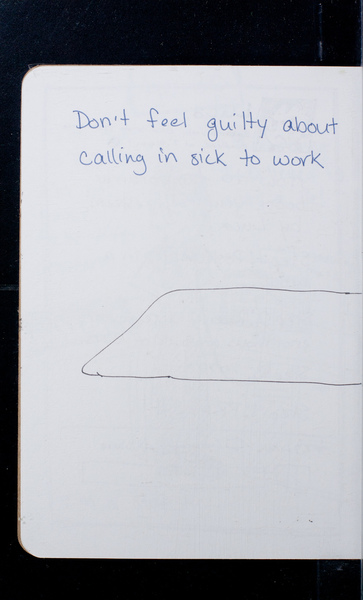 Don't feel guilty about
calling in sick to work